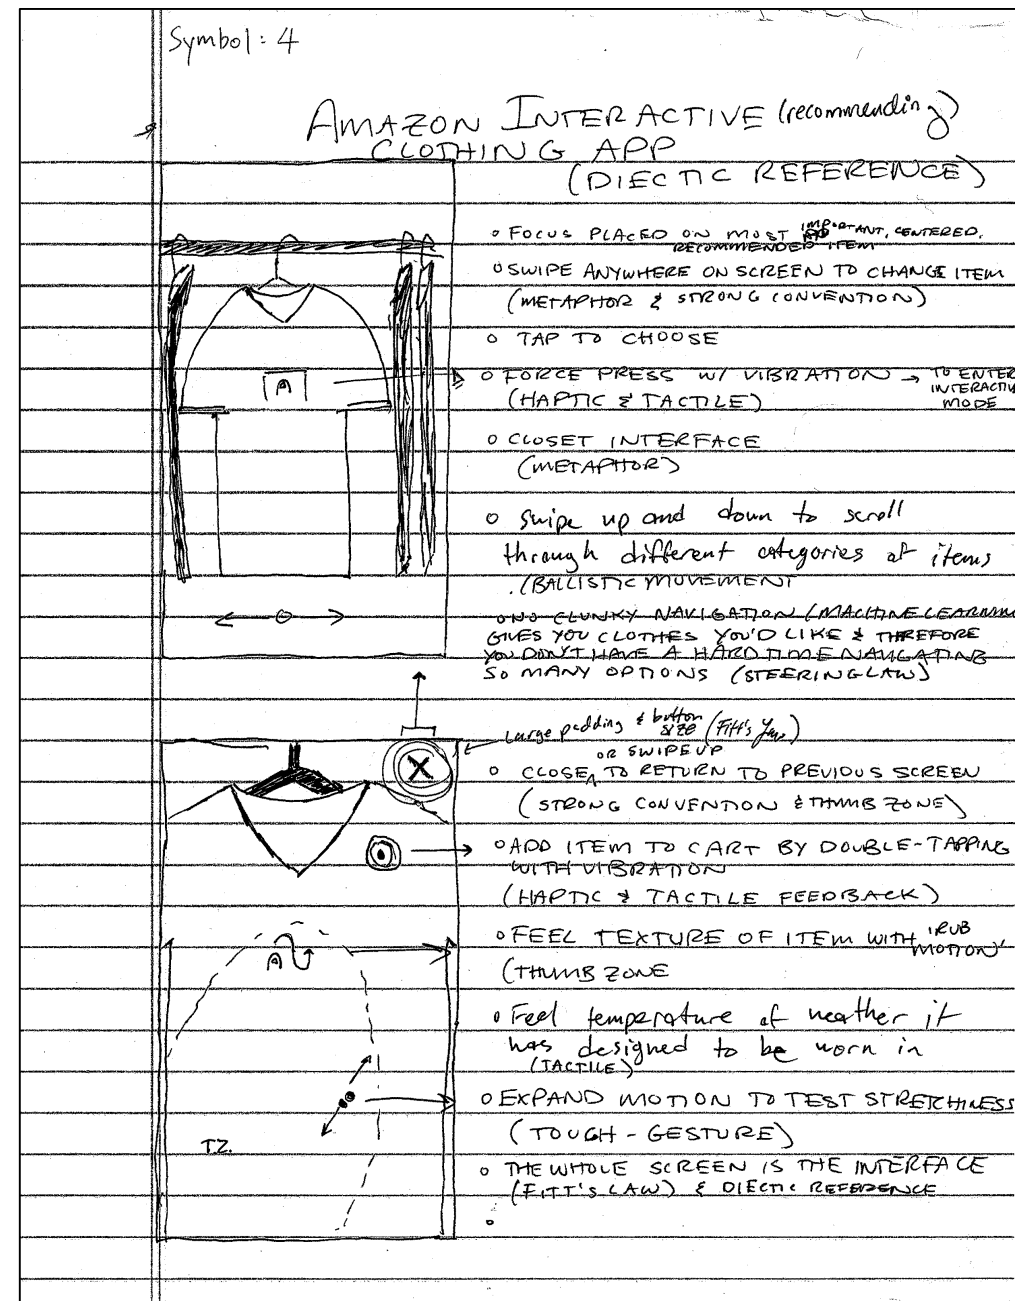 Symbol: 4
AMAZON INTERACTIVE (recommending)
CLOTHING APP
(DIECTIC REFERENCE)
FOCUS PLACED ON MOST IMPORTANT, CENTERED,
RECOMMENDED ITEM
SWIPE ANYWHERE ON SCREEN TO CHANGE ITEM
(METAPHOR & STRONG CONVENTION)
TAP TO CHOOSE
A
FORCE PRESS W/ VIBRATION → TO ENTER
INTERACTIV
MODE
(HAPTIC & TACTILE)
CLOSET INTERFACE
(METAPHOR)
Swipe up and down to scroll
through different categories of items
(BALLISTIC MOVEMENT
NO CLUNKY NAVIGATION (MACHINE LEARNING
GIVES YOU CLOTHES YOU'D LIKE & THEREFORE
YOU DON'T HAVE A HARD TIME NAVIGATING
SO MANY OPTIONS (STEERING LAW)
Large padding & button
size (Fitt's
OR SWIPE UP
X
CLOSE TO RETURN TO PREVIOUS SCREEN
(STRONG CONVENTION & THUMB ZONE)
ADD ITEM TO CART BY DOUBLE-TAPPING
WITH VIBRATION
(HAPTIC & TACTILE FEEDBACK)
FEEL TEXTURE OF ITEM WITH 'RUB
MOTION'
A
(THUMB ZONE
Feel temperature of weather it
was designed to be worn in
(TACTILE)
EXPAND MOTION TO TEST STRETCHINESS
(TOUGH-GESTURE)
T.Z.
THE WHOLE SCREEN IS THE INTERFACE
(FITT'S LAW) & DIECTIC REFERENCE